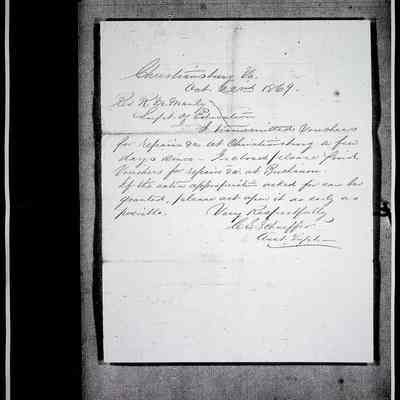 Christiansburg Va.
Oct. 22nd 1869.
Rev R. M. Manly
Supt. of Education
I transmitted Vouchers
for repairs &c. at Christiansburg a few
days since - Inclosed please find
Vouchers for repairs &c at Buchanan.
If the entire appropriation asked for can be
granted, please act upon it as early as
possible. Very Respectfully
C. S. Schaeffer
Asst. Supt.